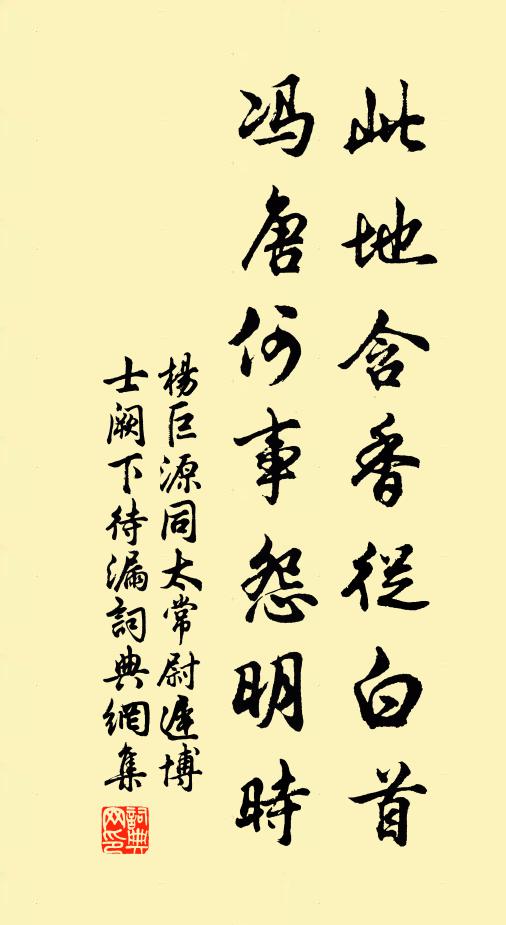 此地含香從白首
冯唐何事怨明時
楊巨源同太常尉遲博
士阙下待漏詞典網集
詞典
网印